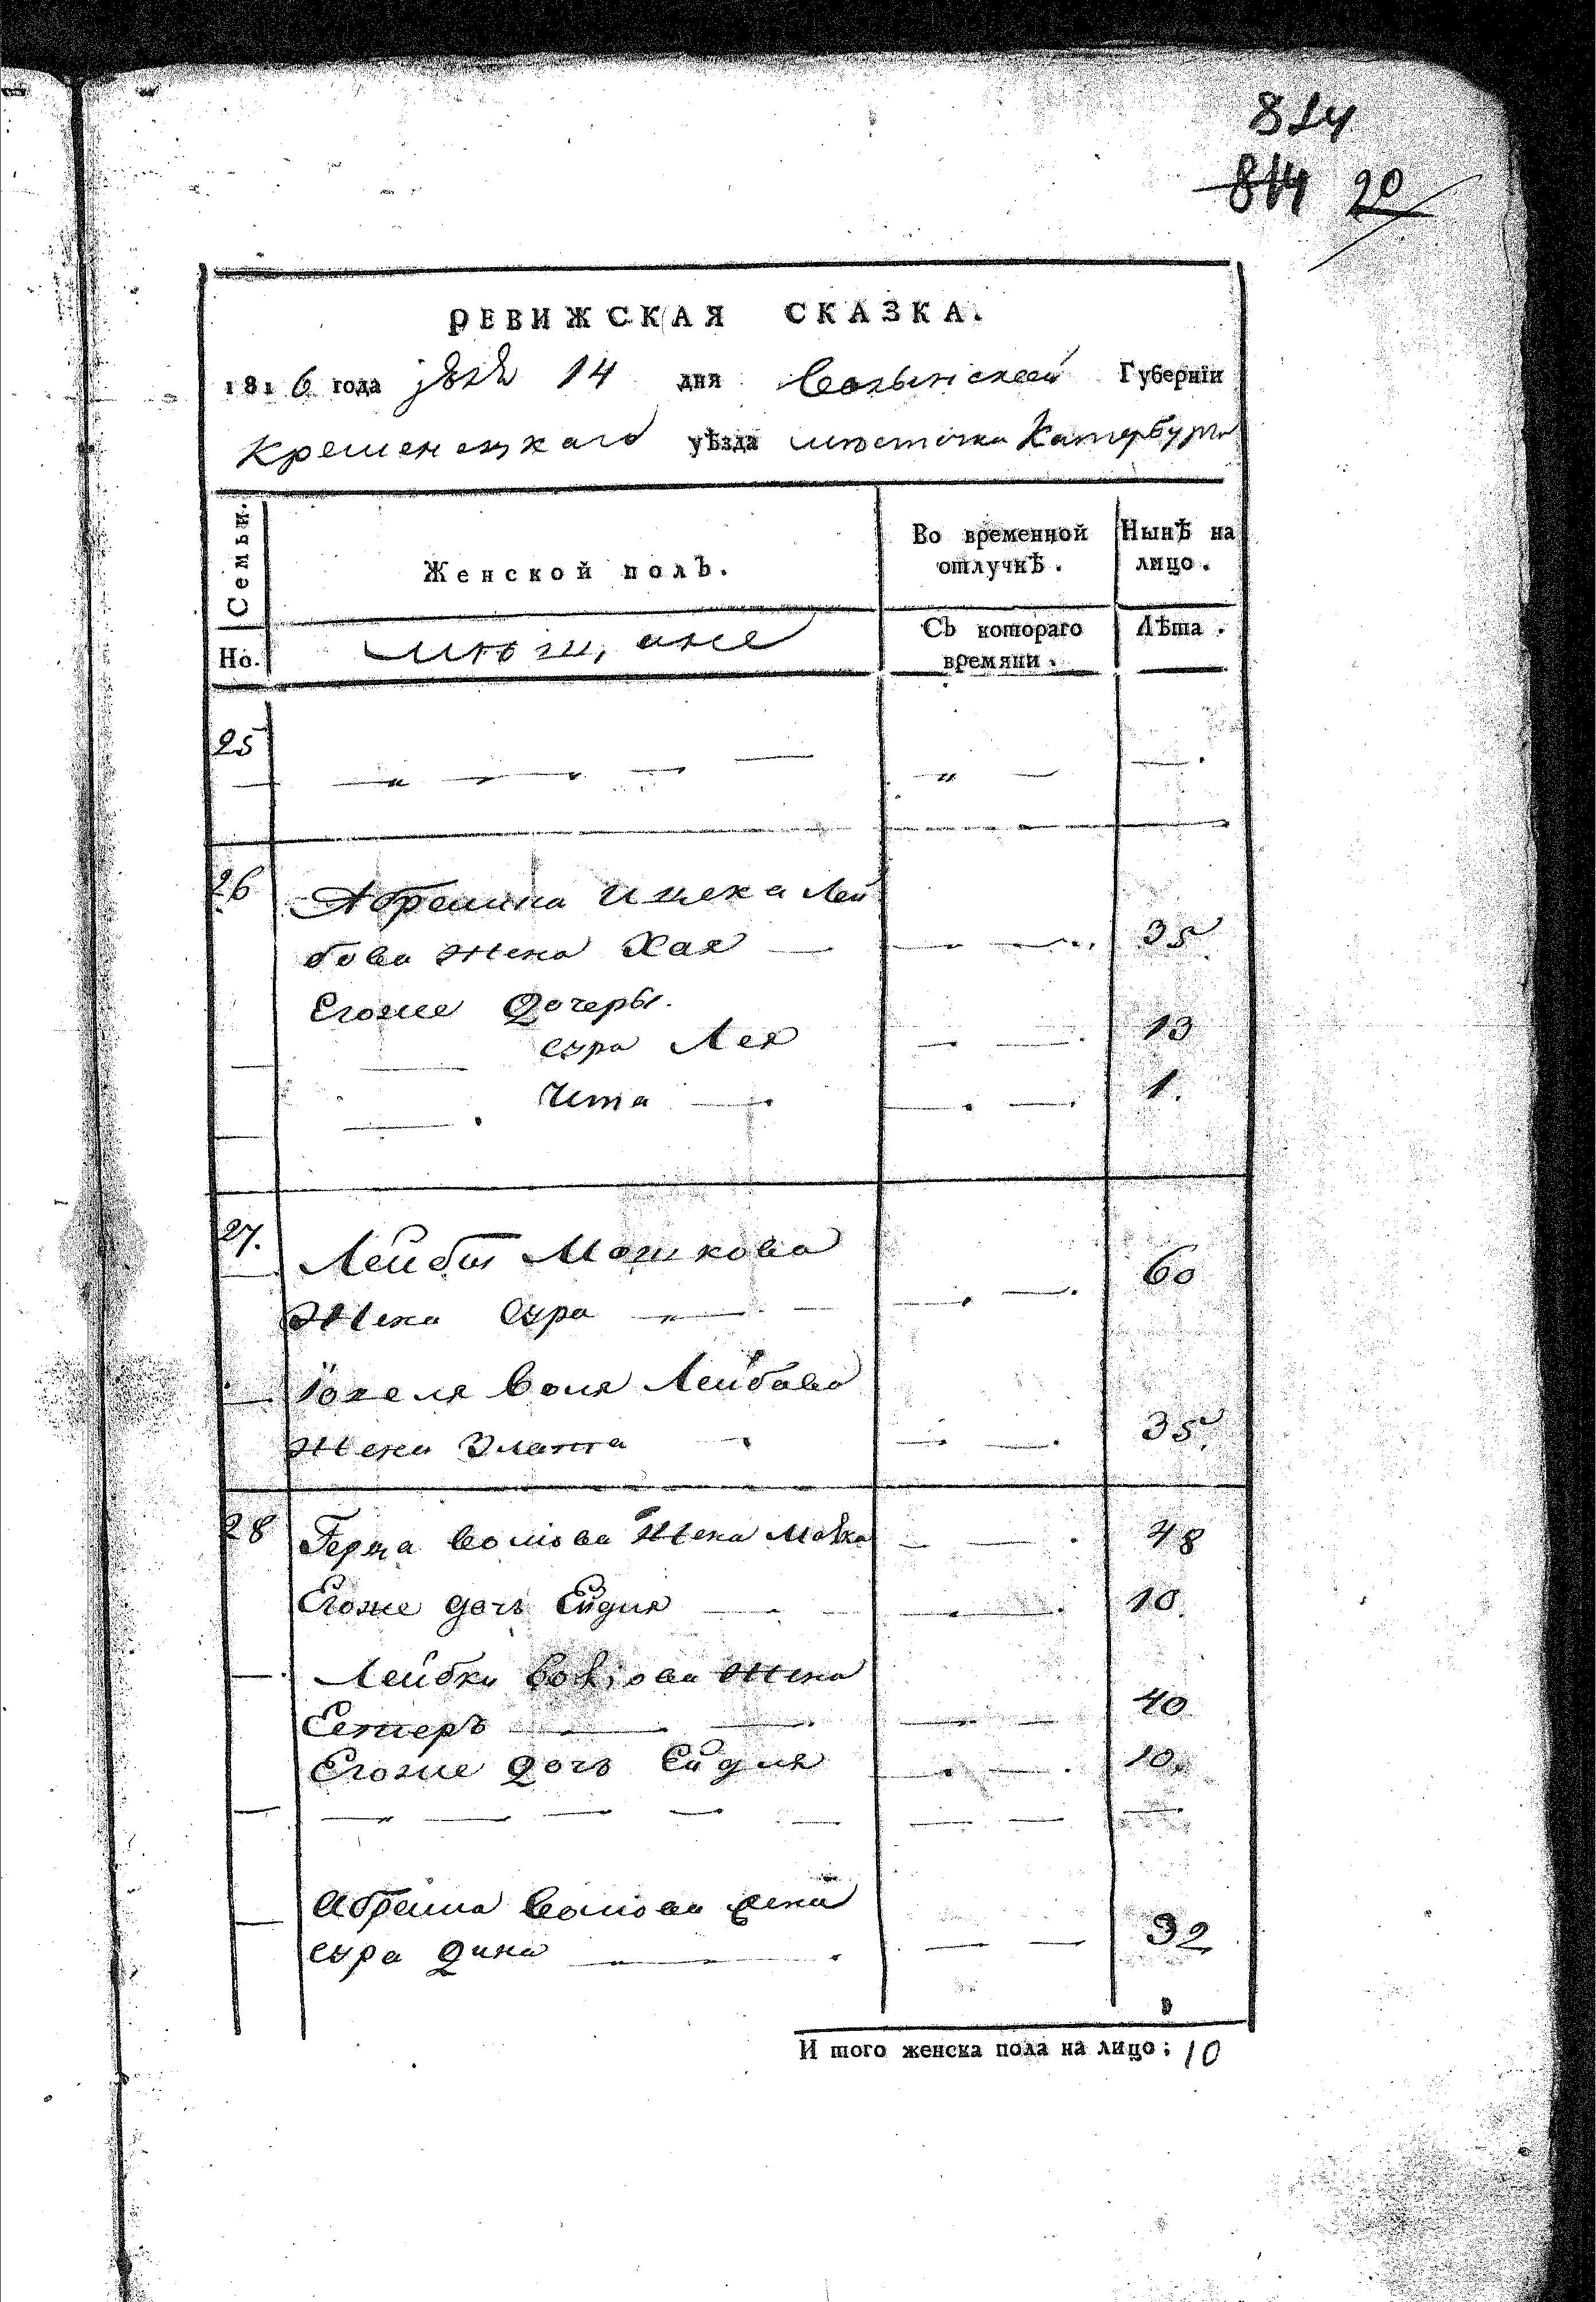 814
814 20
РЕВИЖСКАЯ СКАЗКА.
1816 года 14 дня Волынской Губерніи
Кременецкаго уѣзда местечка Катербурга
Семьи.
Женской полъ.
Во временной отлучкѣ.
Нынѣ на лицо.
Но.
мѣщане
Съ котораго времяни.
Лѣта.
25
26 Абрамка Ицека Лей
бова жена Хая 35
Егоже дочеры.
сура Лея 13
Ита 1.
27. Лейбы Мошкова
жена Сура 60
Лейбова
жена Злата 35
28 Герша жена 48
Егоже дочь Ейдля 10.
Лейбки жена
Естеръ 40
Егоже дочь Ейдля 10.
Абрама жена
сура дина 32
И того женска пола на лицо; 10